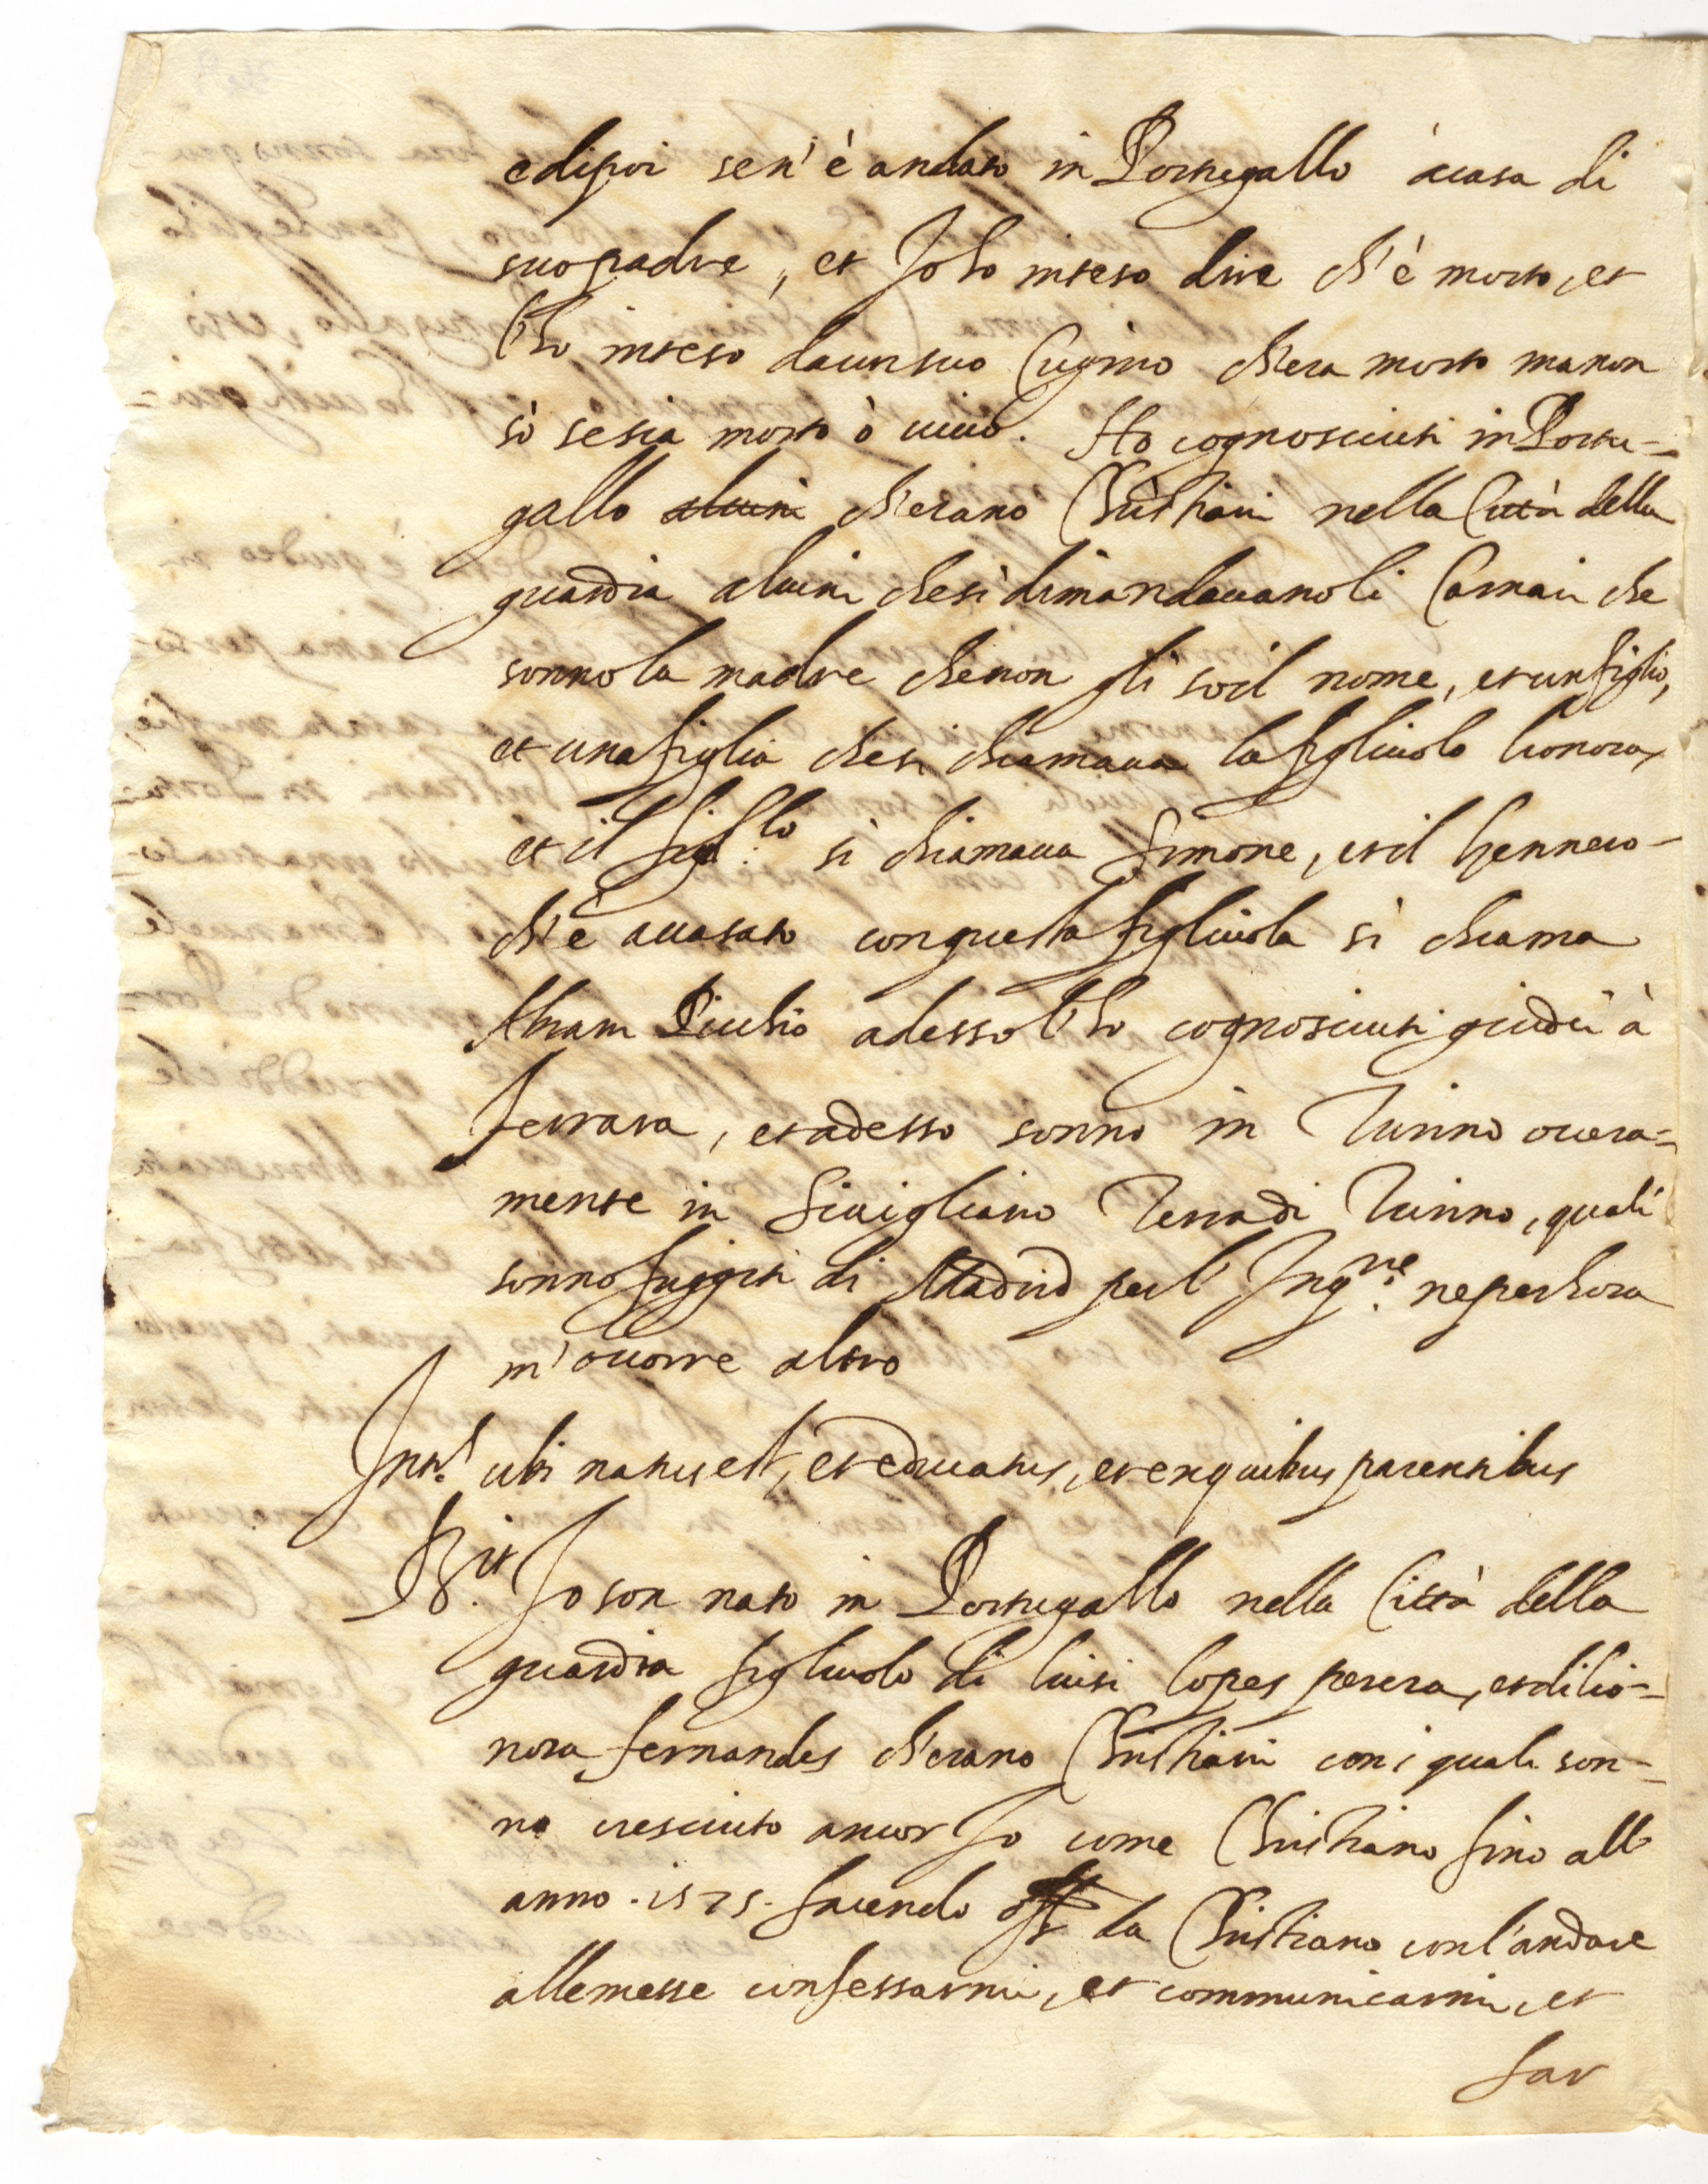 e di poi sen'è andato in Portugallo à casa di
suo padre, et Io ho inteso dire ch'è morto, et
l'ho inteso da un suo Cugino ch'era morto ma non
sò se sia morto ò vivo. Ho cognosciuti in Portu-
gallo alcuni ch'erano Christiani nella Città della
guardia alcuni che si dimandavano li che
sonno la madre che non gli so il nome, et un figlio,
et una figlia che si chiamava la figliuola lionora,
et il figl.lo si chiamava Simone, et il gennero
ch'è accasato con questa figliuola si chiama
Abram adesso l'ho cognosciuti giudei à
ferrara, et adesso sonno in Turino overa-
mente in Sivigliano Terra di Turino, quali
sonno fuggiti di Madrid per l' Inq.ne ne per hora
m'occorre altro
Int.s ubi natus est, et educatus, et ex quibus parentibus
R.it Io son nato in Portugallo nella Città della
guardia figliuolo di luisi lopes perera, et di lio-
nora fernandes ch'erano Christiani con i quali son-
no cresciuto ancor Io come Christiano fino all'
anno .1575. facendo da Christiano con l'andare
alle messe confessarmi, et communicarmi, et
far